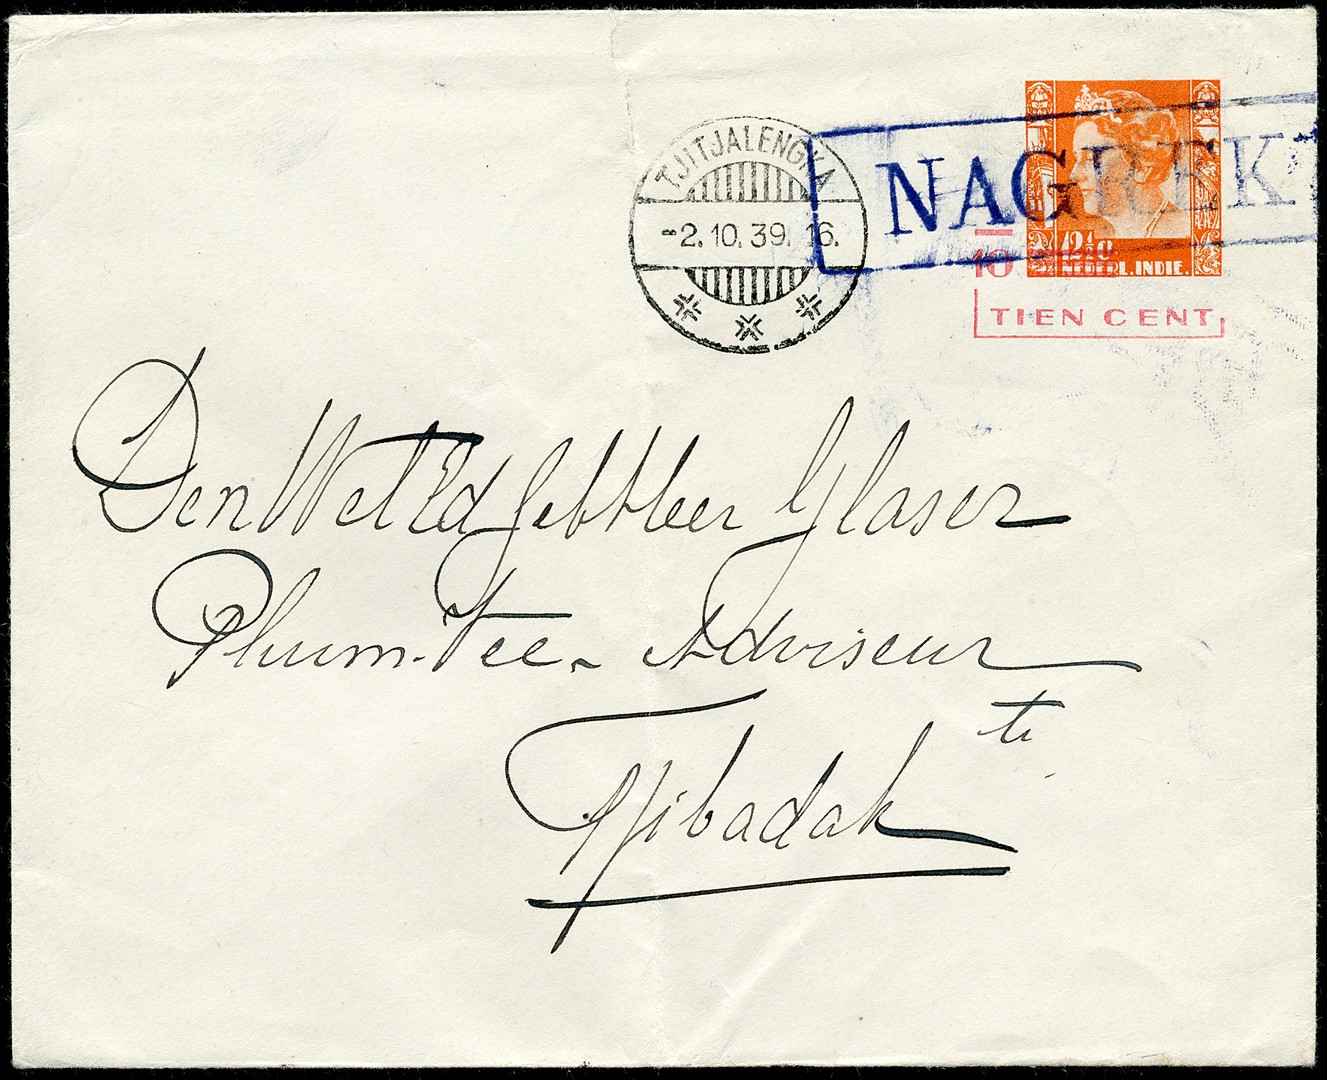 TJITJALENGKA
-2.10.39.16.
NAGREK
12½ c
NEDERL. INDIE.
10
TIEN CENT
Den Weled Gebheer Glaser
Thee-Adviseur
te
Tjibadak